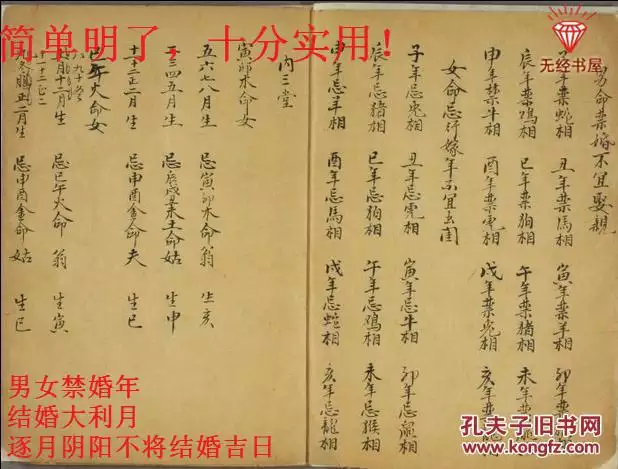 简单明了，十分实用！
无经书屋
男命禁婚不宜娶親
子年禁蛇相 丑年禁馬相 寅年禁羊相 卯年禁
辰年禁鳮相 巳年禁狗相 午年禁猪相 未年禁
申年禁牛相 酉年禁虎相 戌年禁兔相 亥年禁
女命忌行嫁年不宜出閨
子年忌兎相 丑年忌虎相 寅年忌牛相 卯年忌鼠相
辰年忌猪相 巳年忌狗相 午年忌鳮相 未年忌猴相
申年忌羊相 酉年忌馬相 戌年忌蛇相 亥年忌龍相
內三堂
寅卯木命女
五六七八月生 忌寅卯木命翁 生亥
二三四五月生 忌 土命姑 生申
十十二正二月生 忌申酉金命夫 生巳
巳午火命女
月十二月生 忌巳午火命翁 生寅
正二月生 忌申酉金命姑 生巳
男女禁婚年
结婚大利月
逐月阴阳不将结婚吉日
孔夫子旧书网